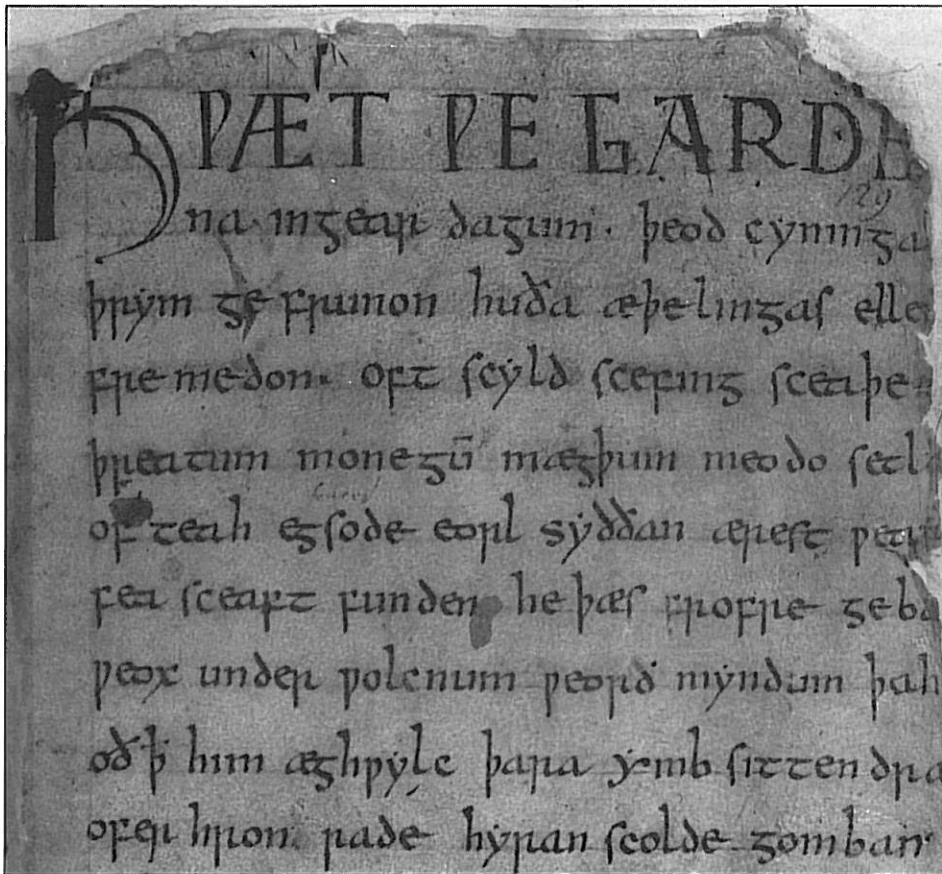 HǷÆT ǷE GARDE
129
na ingear dagum · þeod cyninga
þrym ge frunon huða æþelingas elle
fre medon. oft scyld scefing sceaþe
þreatum monegū mægþum meodo setl
of teah egsode eorl syððan ærest ƿear
fea sceaft funden he þæs frofre geba
ƿeox under ƿolcnum ƿeorð myndum þah
oð ꝥ him æghƿylc þara ymb sittendra
ofer hron rade hyran scolde gomban